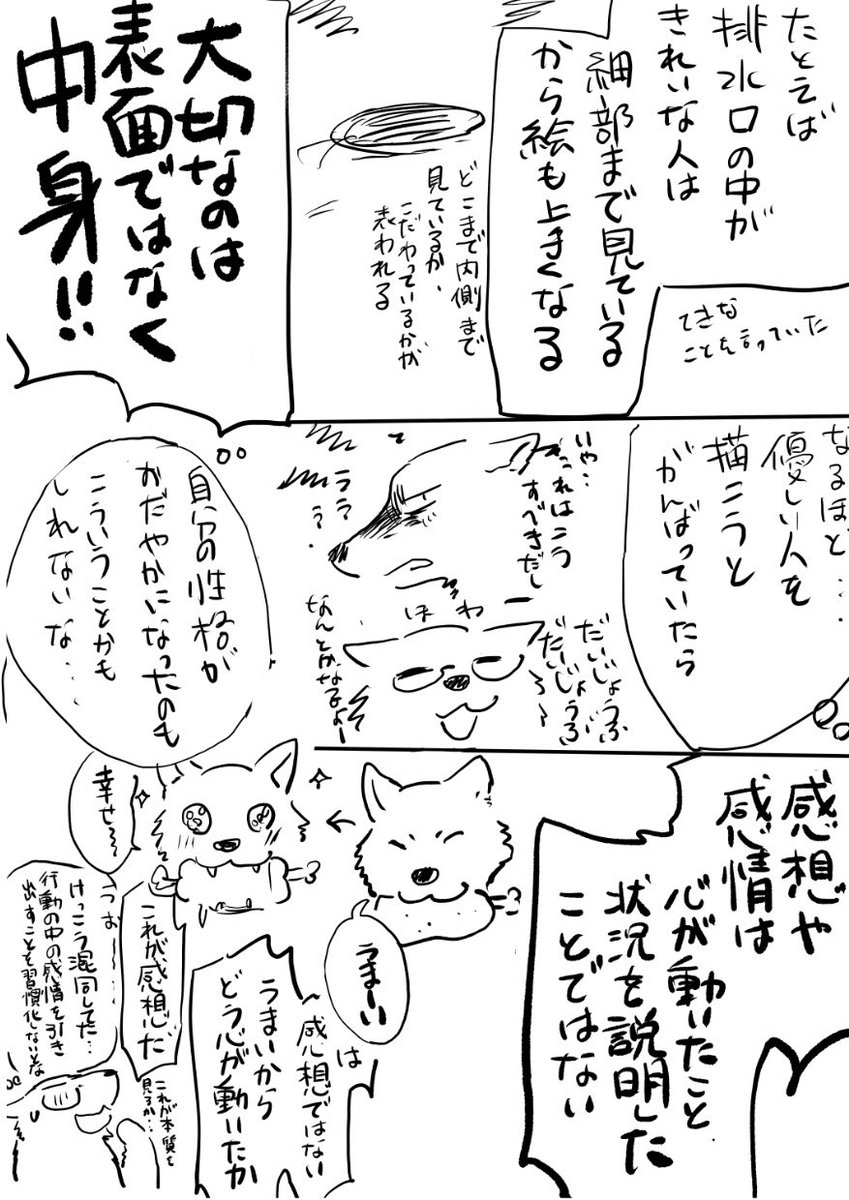 たとえば
排水口の中が
きれいな人は
細部まで見ている
から絵も上手くなる
てきな
ことを言っていた
どこまで内側まで
見ているか、
こだわっているかが
表われる
大切なのは
表面ではなく
中身!!
なるほど…
優しい人を
描こうと
がんばっていたら
いや…
これはこう
すべきだし
ううう
…?
ほわ
だいじょうぶ
だいじょうぶ〜
なんとかなるよー
自分の性格が
おだやかになったのも
こういうことかも
しれないな…
感想や
感情は
心が動いたこと
状況を説明した
ことではない
うまーい
は
感想ではない
うまいから
どう心が動いたか
幸せ〜
これが感想だ
これが本質を
見るか…
うお…
けっこう混同してた…
行動の中の感情を引き
出すことを習慣化しないとな